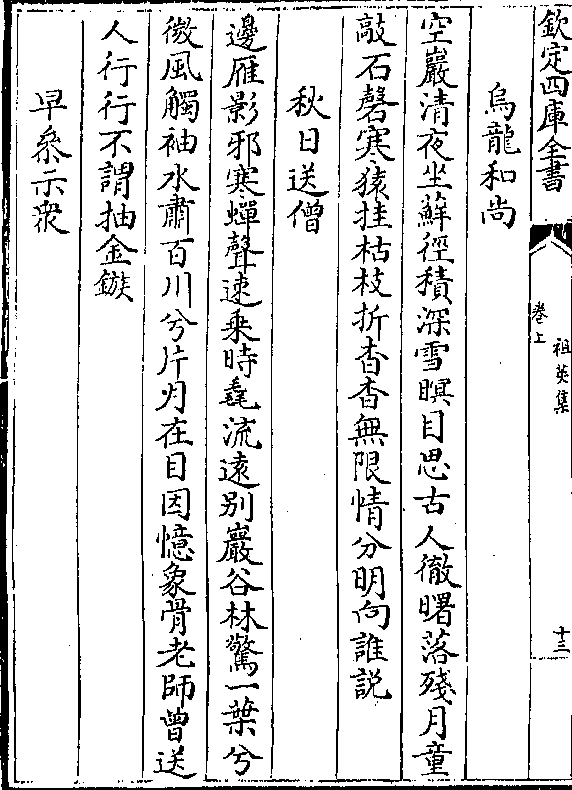 欽定四庫全書
祖英集
卷上
十三
烏龍和尚
空巖清夜坐蘚徑積深雪瞑目思古人徹曙落殘月童
敲石磬寒猿挂枯枝折杳杳無限情分明向誰説
秋日送僧
邊雁影邪寒蟬聲速乗時毳流遠别巖谷林驚一葉兮
微風觸袖水肅百川兮片月在目因憶象骨老師曾送
人行行不謂抽金鏃
早叅示衆